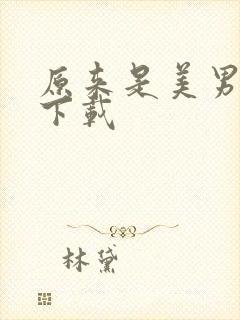 原来是美男
下载
林黛